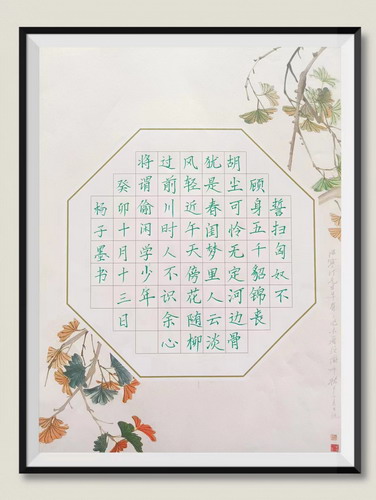 誓扫匈奴不
顾身五千貂锦丧
胡尘可怜无定河边骨
犹是春闺梦里人云淡
风轻近午天傍花随柳
过前川时人不识余心
将谓偷闲学少年
癸卯十月十三日
杨子墨书